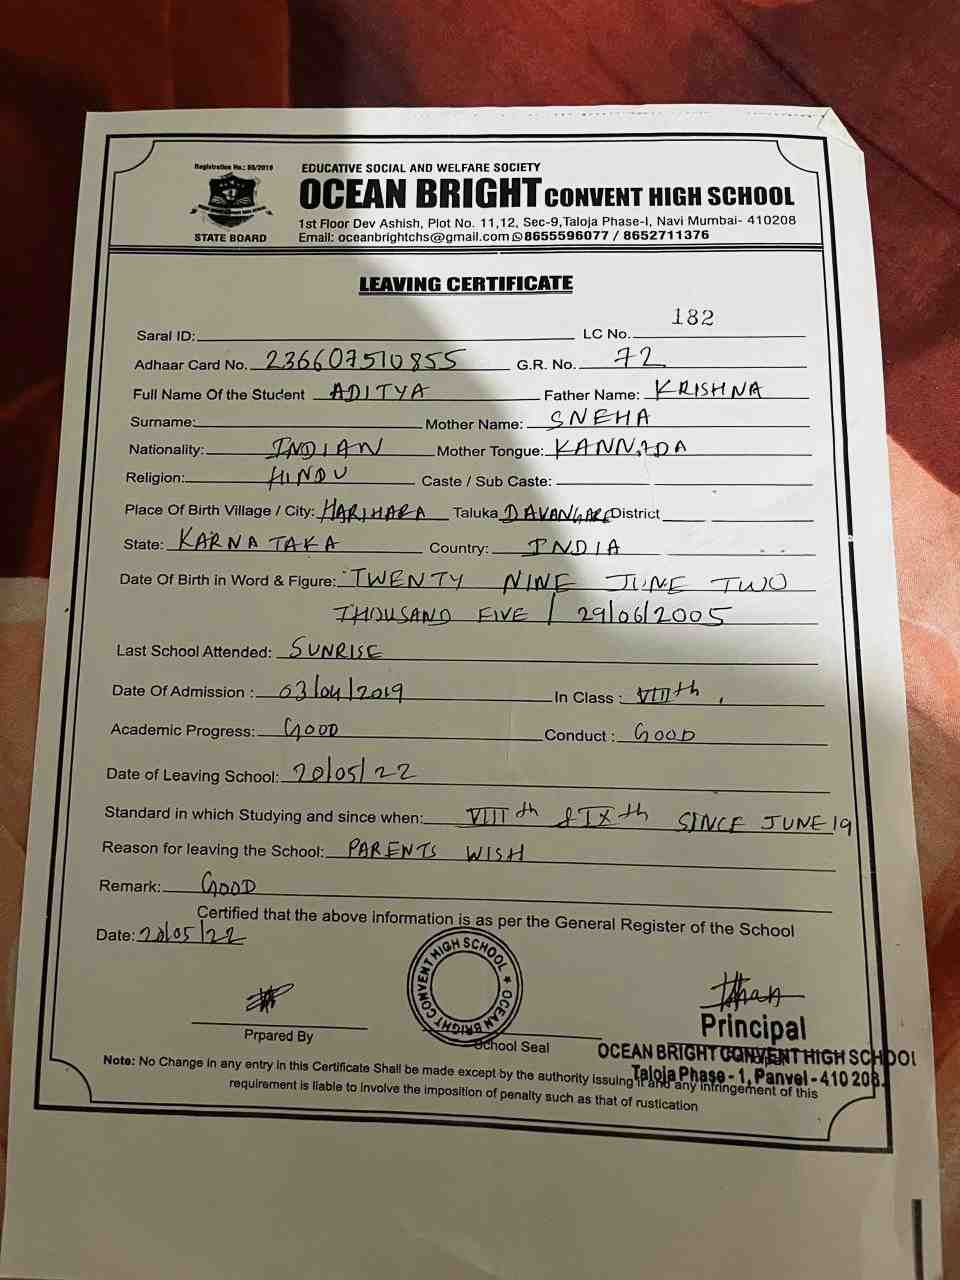 Registration No.: 80/2019
EDUCATIVE SOCIAL AND WELFARE SOCIETY
OCEAN BRIGHT CONVENT HIGH SCHOOL
1st Floor Dev Ashish, Plot No. 11,12, Sec-9,Taloja Phase-I, Navi Mumbai- 410208
STATE BOARD Email: oceanbrightchs@gmail.com 8655596077 / 8652711376
LEAVING CERTIFICATE
Saral ID: LC No. 182
Adhaar Card No. 236607510855 G.R. No. 72
Full Name Of the Student ADITYA Father Name: KRISHNA
Surname: Mother Name: SNEHA
Nationality: INDIAN Mother Tongue: KANNADA
Religion: HINDU Caste / Sub Caste:
Place Of Birth Village / City: HARIHARA Taluka DAVANGARE District
State: KARNATAKA Country: INDIA
Date Of Birth in Word & Figure: TWENTY NINE JUNE TWO
THOUSAND FIVE / 29/06/2005
Last School Attended: SUNRISE
Date Of Admission : 03/04/2019 In Class : VIIIth
Academic Progress: GOOD Conduct : GOOD
Date of Leaving School: 20/05/22
Standard in which Studying and since when: VIIIth & IXth SINCE JUNE 19
Reason for leaving the School: PARENTS WISH
Remark: GOOD
Certified that the above information is as per the General Register of the School
Date: 20/05/22
OCEAN BRIGHT CONVENT HIGH SCHOOL
Prpared By School Seal Principal
OCEAN BRIGHT CONVENT HIGH SCHOOL
Taloja Phase - 1, Panvel - 410 208.
Note: No Change in any entry in this Certificate Shall be made except by the authority issuing it and any infringement of this
requirement is liable to involve the imposition of penalty such as that of rustication